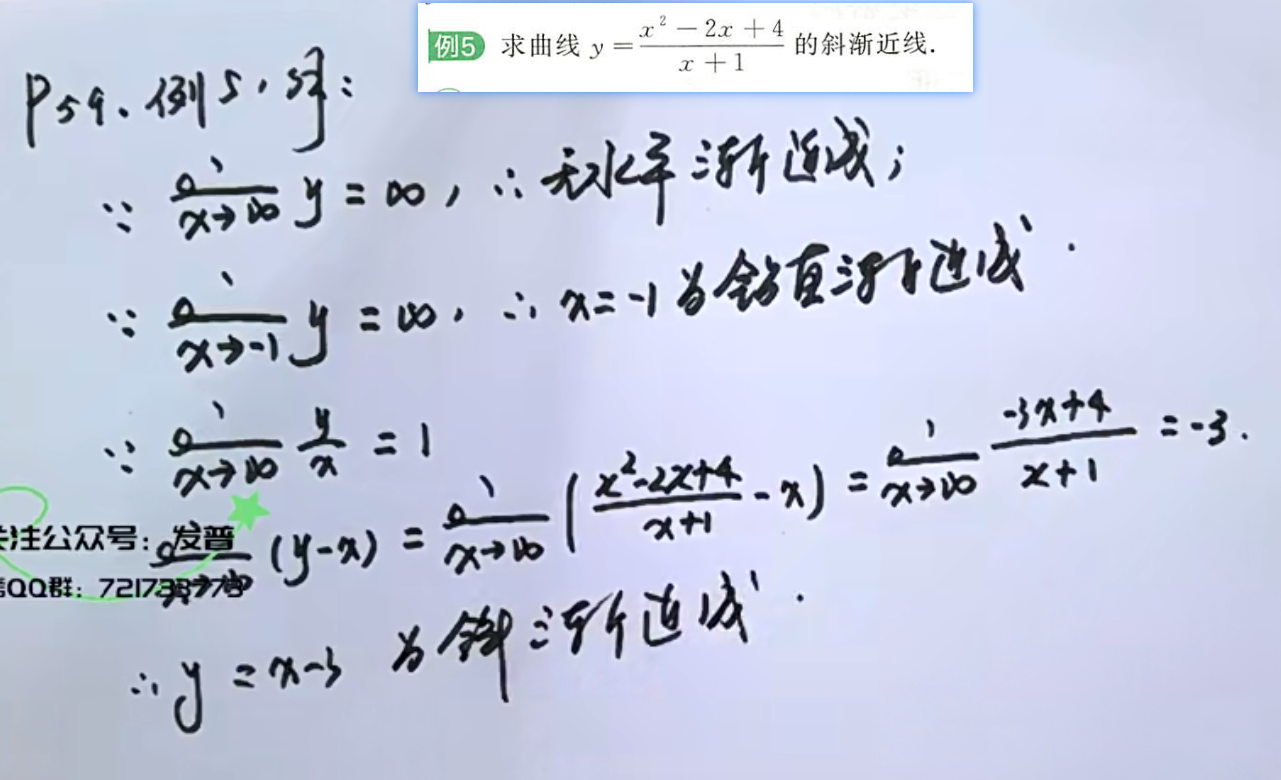 例5 求曲线 y = \frac{x^2 - 2x + 4}{x + 1} 的斜渐近线.
P59. 例5. 解:
∵ \lim_{x→∞} y = ∞, ∴ 无水平渐近线;
∵ \lim_{x→-1} y = ∞, ∴ x = -1 为铅直渐近线.
∵ \lim_{x→∞} \frac{y}{x} = 1
\lim_{x→∞} (y-x) = \lim_{x→∞} (\frac{x^2-2x+4}{x+1} - x) = \lim_{x→∞} \frac{-3x+4}{x+1} = -3.
关注公众号: 发普
QQ群: 721733773
∴ y = x-3 为斜渐近线.